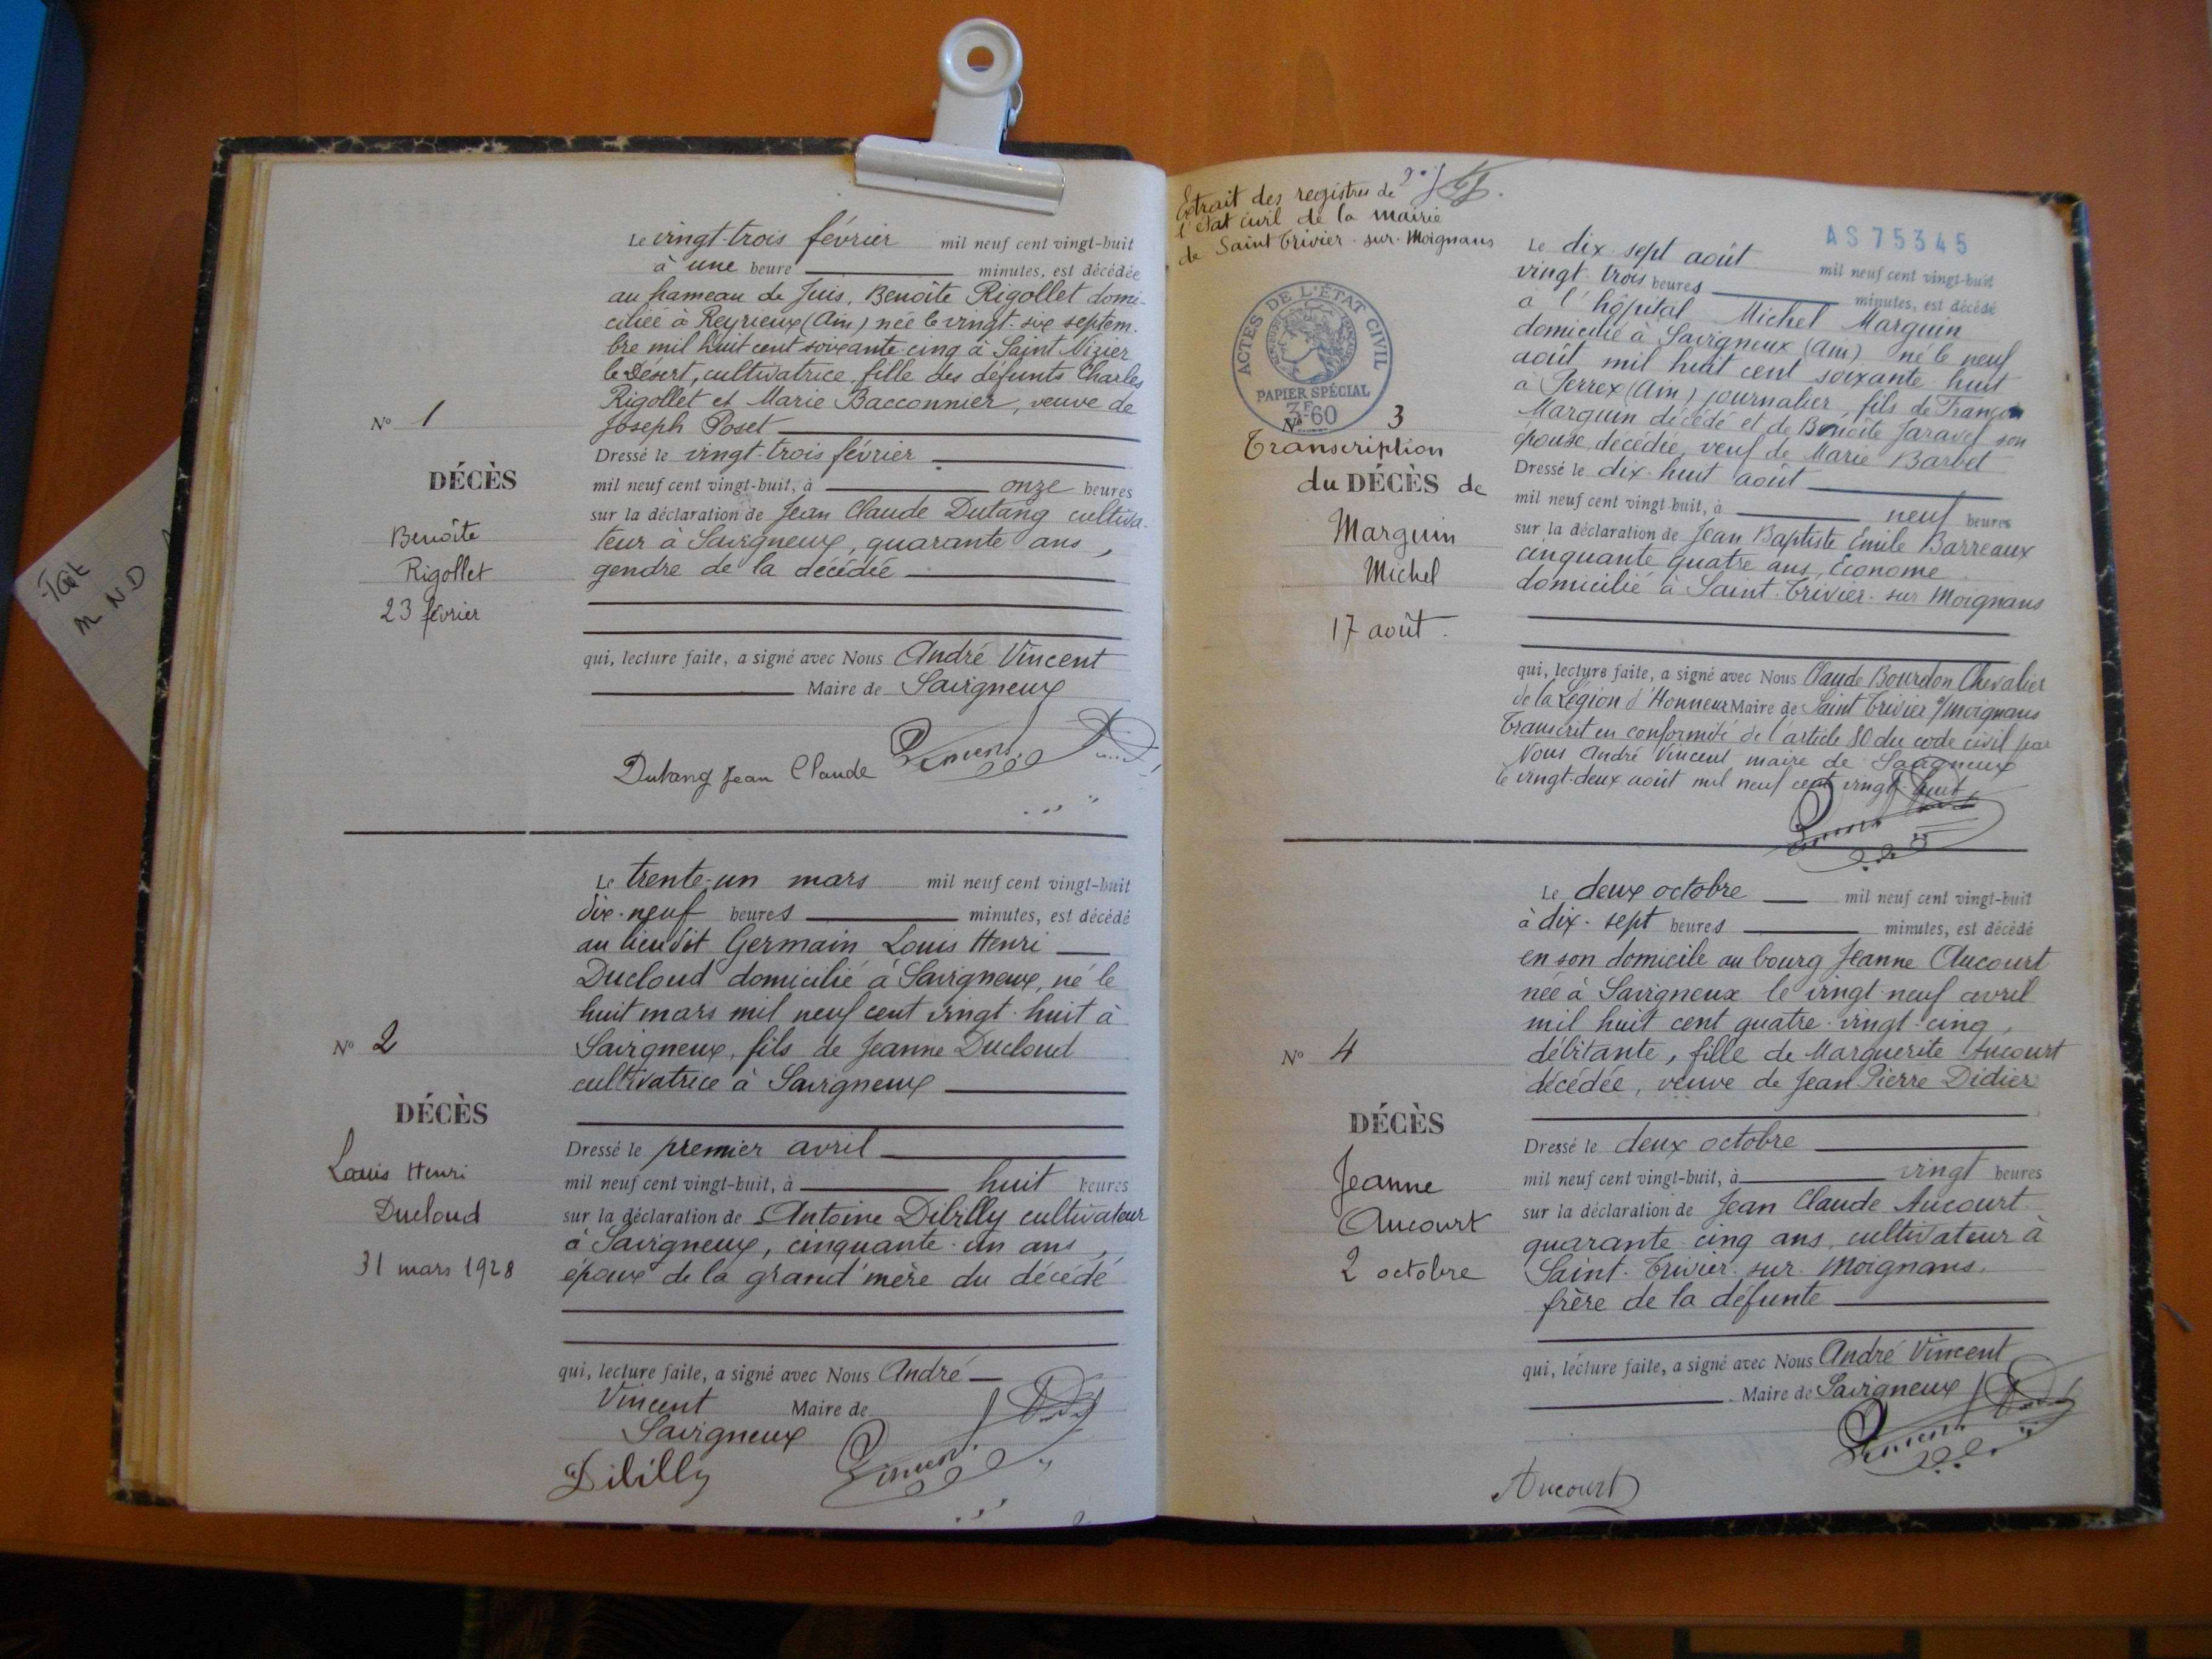 Le vingt-trois février mil neuf cent vingt-huit
à une heure minutes, est décédée
au hameau de Juis, Benoîte Rigollet domi-
ciliée à Reyrieux (Ain) née le vingt-six septem-
bre mil huit cent soixante-cinq à Saint Nizier
le Désert, cultivatrice, fille des défunts Charles
Rigollet et Marie Bacconnier, veuve de
Joseph Poset
Dressé le vingt-trois février
mil neuf cent vingt-huit, à onze heures
sur la déclaration de Jean Claude Dutang cultiva-
teur à Savigneux, quarante ans,
gendre de la décédée
qui, lecture faite, a signé avec Nous André Vincent
Maire de Savigneux
Dutang Jean Claude Vincent
N° 1
DÉCÈS
Benoîte
Rigollet
23 février
Le trente-un mars mil neuf cent vingt-huit
dix-neuf heures minutes, est décédé
au lieu dit Germain Louis Henri
Ducloud domicilié à Savigneux, né le
huit mars mil neuf cent vingt-huit à
Savigneux, fils de Jeanne Ducloud
cultivatrice à Savigneux
Dressé le premier avril
mil neuf cent vingt-huit, à huit heures
sur la déclaration de Antoine Dibilly cultivateur
à Savigneux, cinquante-un ans,
époux de la grand'mère du décédé
qui, lecture faite, a signé avec Nous André
Vincent Maire de
Savigneux
Dibilly Vincent
N° 2
DÉCÈS
Louis Henri
Ducloud
31 mars 1928
Tait
M ND
Extrait des registres de
l'état civil de la mairie
de Saint Trivier-sur-Moignans
ACTES DE L'ÉTAT CIVIL
RÉPUBLIQUE FRANÇAISE
PAPIER SPÉCIAL
3F60
AS 75345
N° 3
Transcription
du DÉCÈS de
Marguin
Michel
17 août.
Le dix-sept août mil neuf cent vingt-huit
vingt-trois heures minutes, est décédé
à l'hôpital Michel Marguin
domicilié à Savigneux (Ain) né le neuf
août mil huit cent soixante-huit
à Perrex (Ain) journalier, fils de François
Marguin décédé et de Benoîte Jaravel son
épouse décédée, veuf de Marie Barbet
Dressé le dix-huit août
mil neuf cent vingt-huit, à neuf heures
sur la déclaration de Jean Baptiste Emile Barreaux
cinquante quatre ans, Econome
domicilié à Saint-Trivier-sur Moignans
qui, lecture faite, a signé avec Nous Claude Bourdon Chevalier
de la Légion d'Honneur Maire de Saint Trivier s/Moignans
Transcrit en conformité de l'article 80 du code civil par
Nous André Vincent maire de Savigneux
le vingt-deux août mil neuf cent vingt-huit
Vincent
Le deux octobre mil neuf cent vingt-huit
à dix-sept heures minutes, est décédé
en son domicile au bourg Jeanne Aucourt
née à Savigneux le vingt-neuf avril
mil huit cent quatre-vingt-cinq,
débitante, fille de Marguerite Aucourt
décédée, veuve de Jean Pierre Didier
Dressé le deux octobre
mil neuf cent vingt-huit, à vingt heures
sur la déclaration de Jean Claude Aucourt
quarante-cinq ans, cultivateur à
Saint-Trivier-sur-Moignans.
frère de la défunte
qui, lecture faite, a signé avec Nous André Vincent
Maire de Savigneux
Vincent
Aucourt
N° 4
DÉCÈS
Jeanne
Aucourt
2 octobre